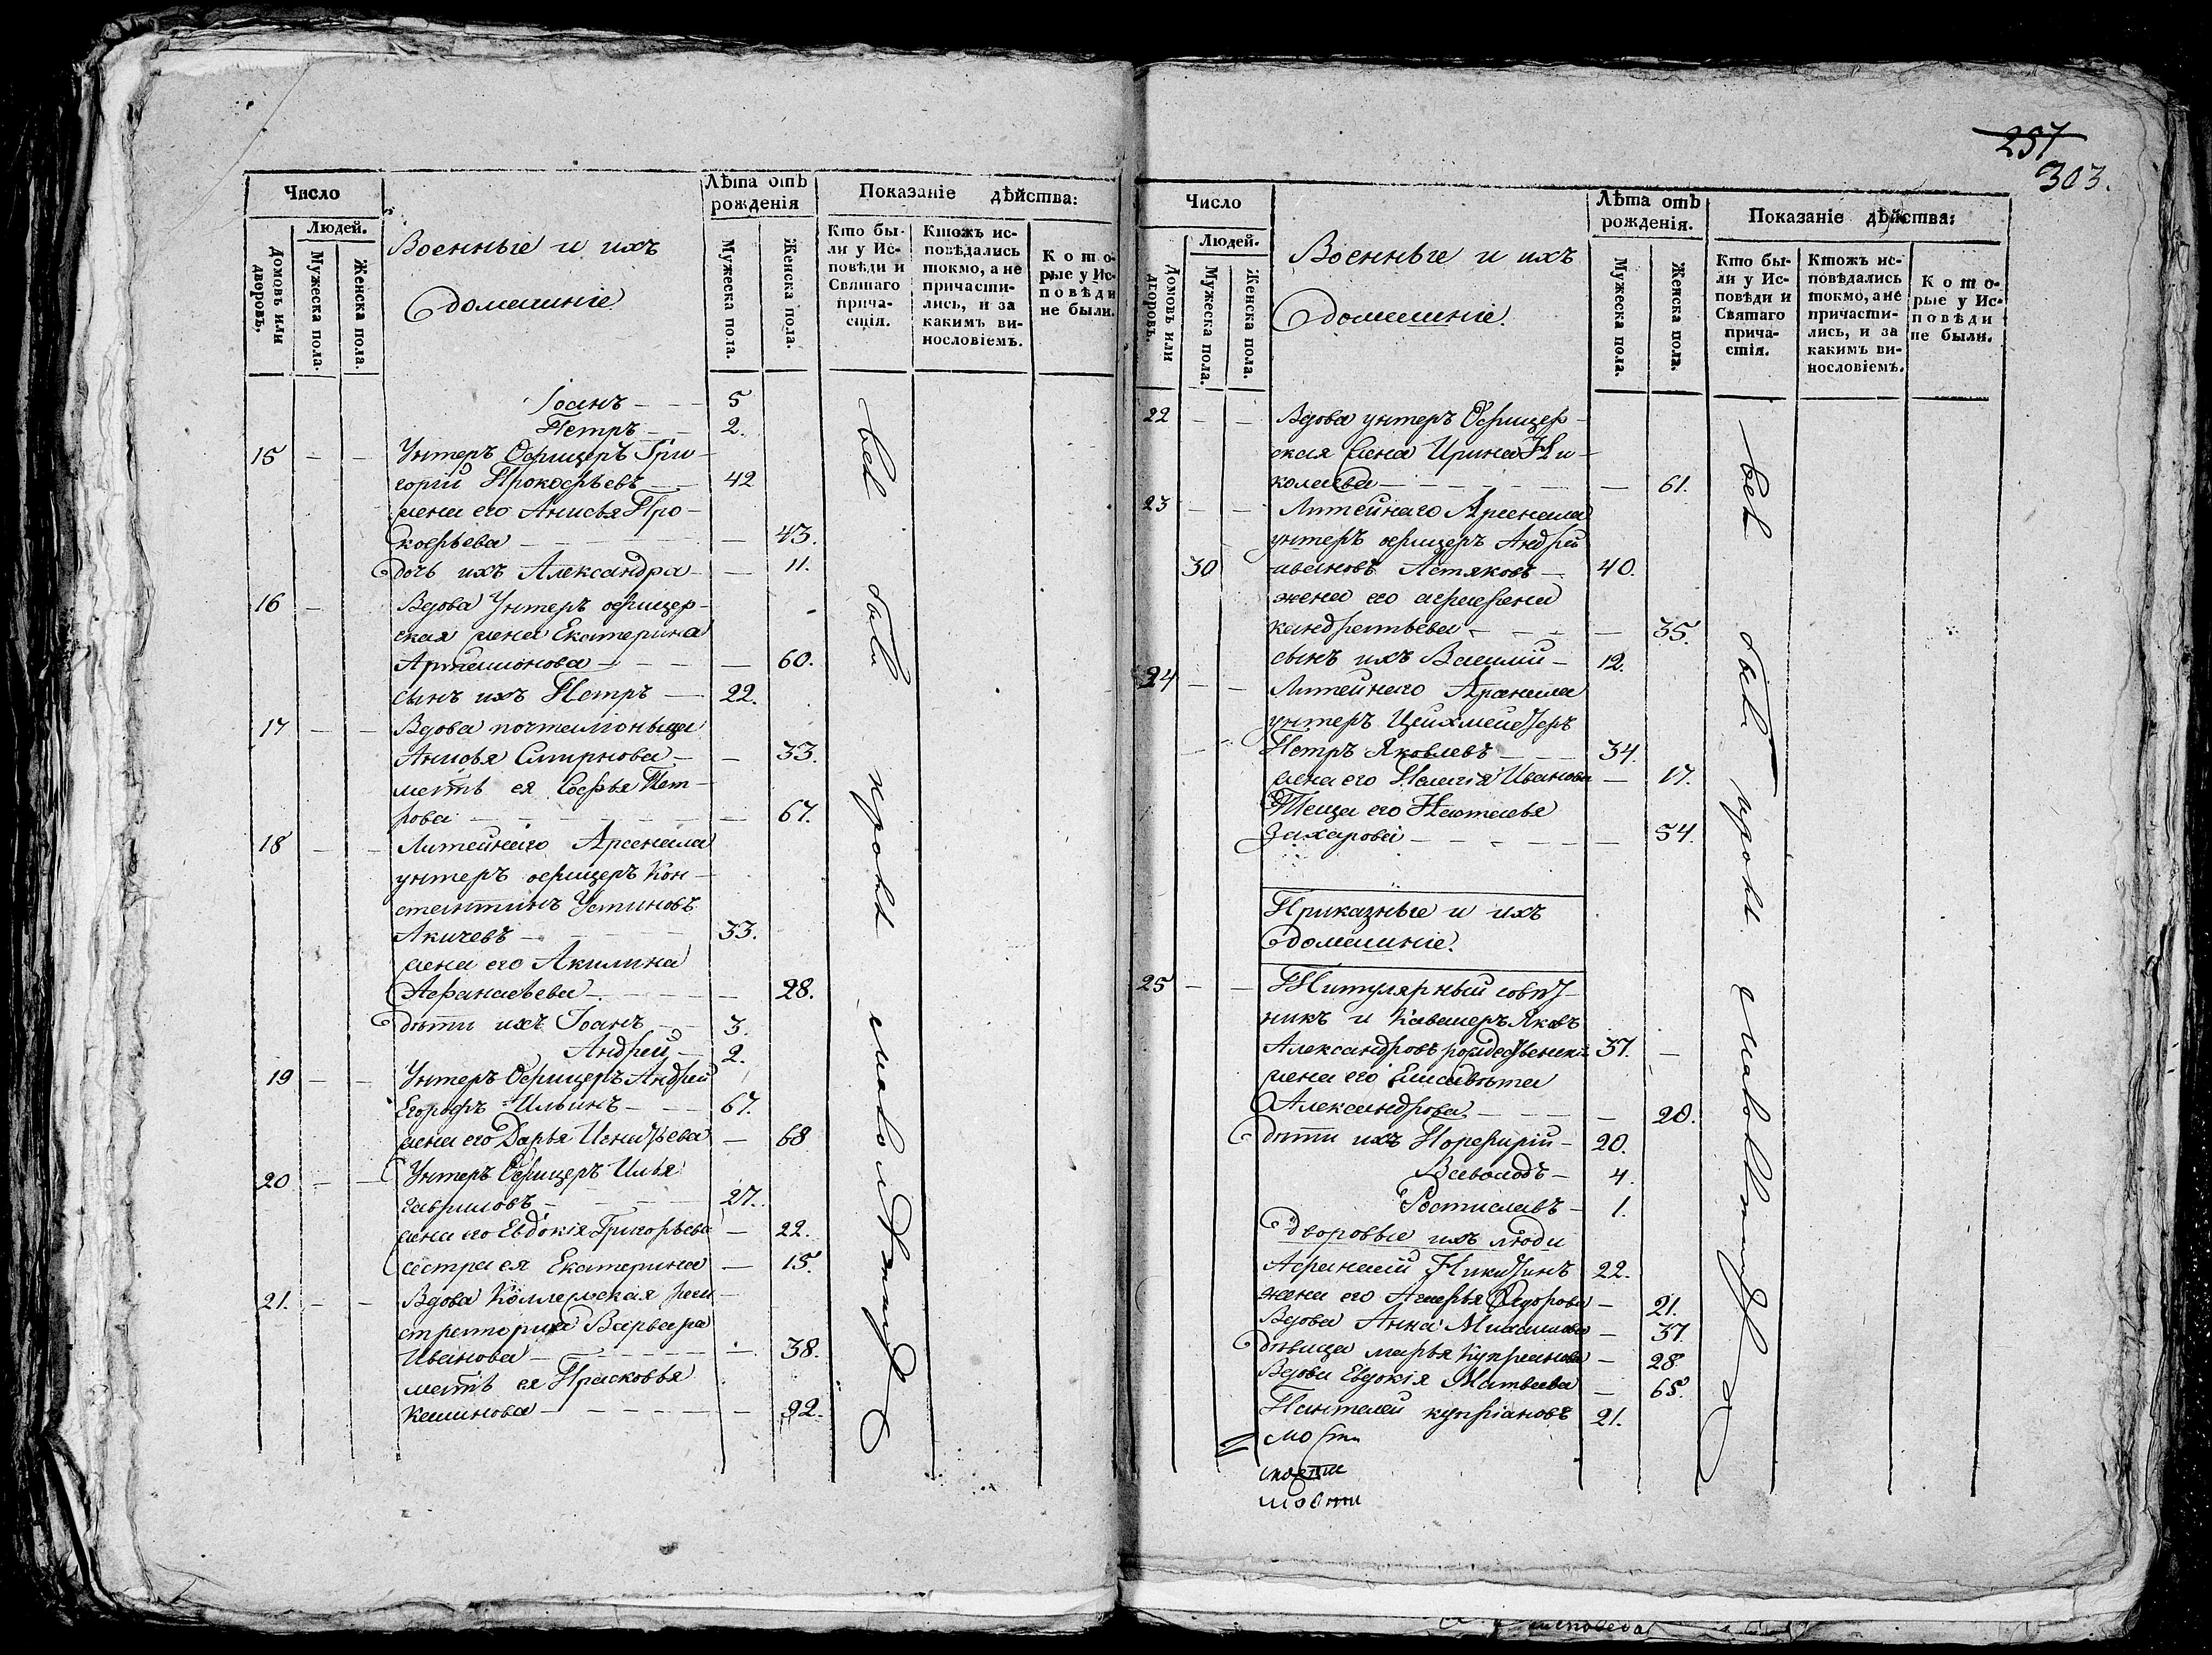 Число
Людей.
Домовъ или дворовъ,
Мужеска пола.
Женска пола.
Военные и ихъ
домашніе.
Лѣта отъ рожденія
Мужеска пола.
Женска пола.
Показаніе дѣйства:
Кто бы-
ли у Ис-
повѣди и
Святаго
прича-
стія.
Ктожъ ис-
повѣдались
токмо, а не
причасти-
лись, и за
какимъ ви-
нословіемъ.
Кото-
рые у Ис-
повѣди
не были.
Іоанъ — 5
Петръ — 2.
15 — — Унтеръ Офицеръ Гри-
горій Прокофьевъ — 42
жена его Анисья Про-
кофьева — 43.
дочь ихъ Александра — 11.
16 — Вдова Унтеръ офицер-
ская жена Екатерина
Артемонова — 60.
сынъ ихъ Петръ — 22.
17 — — Вдова почталіонща
Анисья Смирнова — 33.
мать ея Софья Пет-
рова — 67.
18 — — Литейнаго Арсенала
унтеръ офицеръ Кон-
стантинъ Устиновъ
Акичевъ — 33.
жена его Акилина
Афанасьева — 28.
дѣти ихъ Іоанъ — 3.
Андрей — 2.
19 — — Унтеръ Офицеръ Андрей
Егорофъ Ильинъ — 67.
жена его Дарья Игнатьева — 68
20 — — Унтеръ Офицеръ Илья
гавриловъ — 27.
жена его Евдокія Григорьева — 22.
сестра ея Екатерина — 15.
21. — — Вдова Коллежская реги-
страторша Варвара
Иванова — 38.
мать ея Прасковья
Калинова — 92.
всѣ были кромѣ малолѣтнихъ
257
303.
Число
Людей.
Домовъ или дворовъ.
Мужеска пола.
Женска пола.
Военные и ихъ
домашніе.
Лѣта отъ рожденія.
Мужеска пола.
Женска пола.
Показаніе дѣйства:
Кто бы-
ли у Ис-
повѣди и
Святаго
прича-
стія.
Ктожъ ис-
повѣдались
токмо, а не
причасти-
лись, и за
какимъ ви-
нословіемъ.
Кото-
рые у Ис-
повѣди
не были.
22 — — Вдова унтеръ Офицер-
ская жена Ирина Ни-
колаева — 61.
23 — — Литейнаго Арсенала
унтеръ офицеръ Андрей
30 ивановъ Астяковъ — 40.
жена его аграфена
кандратьева — 35.
сынъ ихъ Василій — 12.
24 — — Литейнаго Арсенала
унтеръ Цейхмейстеръ
Петръ Яковлевъ — 34.
жена его Иванова — 17.
Теща его Настасья
Захарова — 54.
Приказные и ихъ
домашніе.
25 — — Титулярный совѣт-
никъ и Кавалеръ Яковъ
Александровъ рождественскій 37. —
жена его Елисавѣта
Александрова — 20.
дѣти ихъ Порфирій — 20.
Всеволодъ — 4.
Ростиславъ — 1.
дворовые ихъ люди
Афанасій Никитинъ 22.
жена его Агафья Федорова — 21.
Вдова Анна Михаилова — 37.
дѣвица марья Купреянова — 28
Вдова Евдокія Матвеева — 65.
Пантелей купріановъ 21.
всѣ были кромѣ малолѣтнихъ